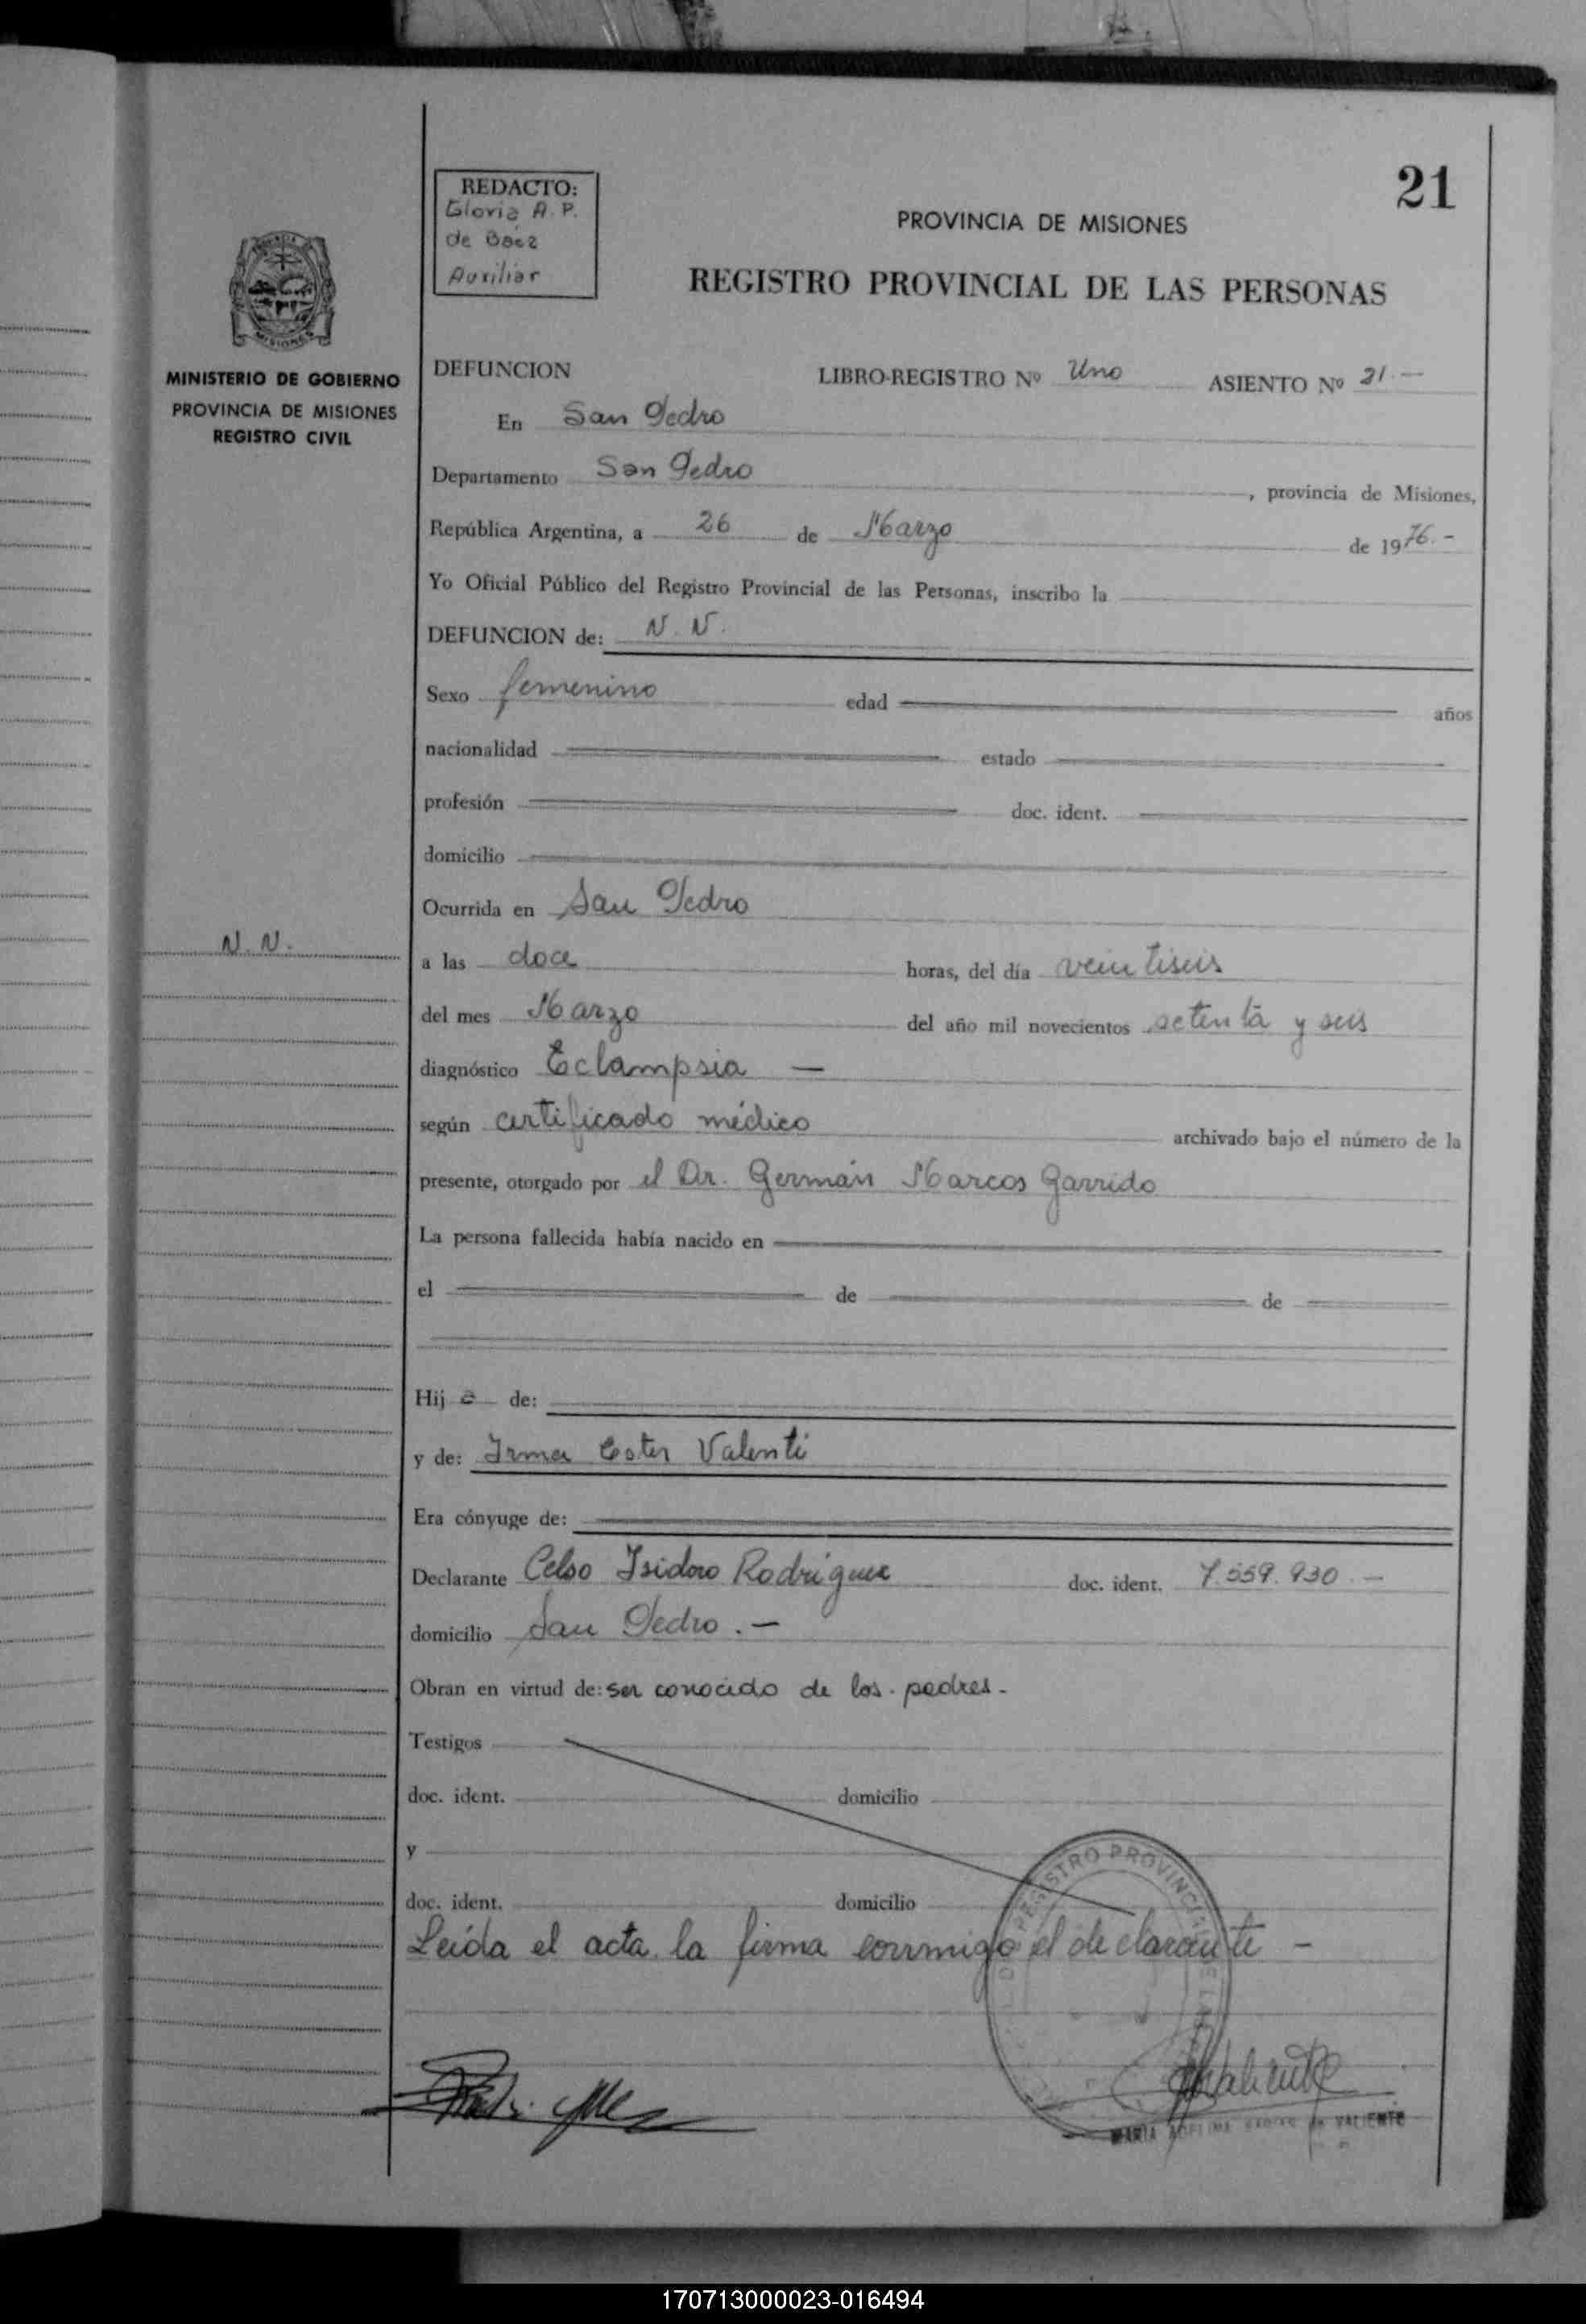 21
REDACTO:
Gloria A. P.
de Báez
Auxiliar
PROVINCIA DE MISIONES
REGISTRO PROVINCIAL DE LAS PERSONAS
MISIONES
MINISTERIO DE GOBIERNO
PROVINCIA DE MISIONES
REGISTRO CIVIL
DEFUNCION LIBRO-REGISTRO Nº Uno ASIENTO Nº 21.—
En San Pedro
Departamento San Pedro, provincia de Misiones,
República Argentina, a 26 de Marzo de 1976.-
Yo Oficial Público del Registro Provincial de las Personas, inscribo la
DEFUNCION de: N. N.
Sexo femenino edad años
nacionalidad estado
profesión doc. ident.
domicilio
Ocurrida en San Pedro
N. N.
a las doce horas, del día veintiseis
del mes Marzo del año mil novecientos setenta y seis
diagnóstico Eclampsia —
según certificado médico archivado bajo el número de la
presente, otorgado por el Dr. Germán Marcos Garrido
La persona fallecida había nacido en
el de de
Hij a de:
y de: Irma Ester Valenti
Era cónyuge de:
Declarante Celso Isidoro Rodriguez doc. ident. 7.559.930.—
domicilio San Pedro.—
Obran en virtud de: ser conocido de los padres.
Testigos
doc. ident. domicilio
y
doc. ident. domicilio
Leida el acta la firma conmigo el declarante -
REGISTRO PROVINCIAL DE LA
MARIA de VALIENTE
170713000023-016494